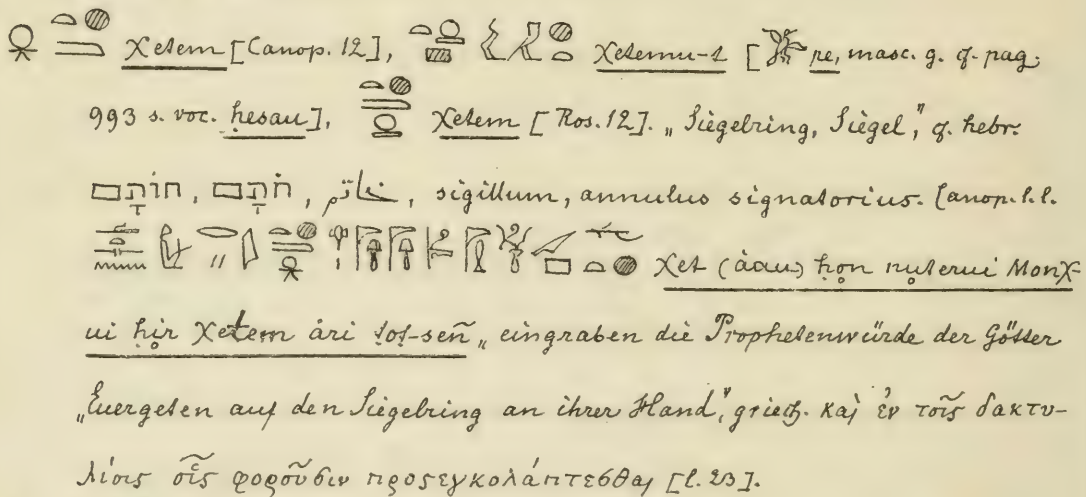 χetem [Canop. 12], χetemu-t [pe, masc. g. cf. pag.
993 s. voc. ḥesau], χetem [Ros. 12]. „Siegelring, Siegel," cf. hebr.
חוֹתָם, חֹתָם, خاتم, sigillum, annulus signatorius. Canop. l. l.
χet (àau) ḥon nuterui Monχ-
ui ḥir χetem àri tot-señ „eingraben die Prophetenwürde der Götter
„Euergeten auf den Siegelring an ihrer Hand," griech. καὶ ἐν τοῖς δακτυ-
λίοις οἷς φοροῦσιν προςεγκολάπτεσθαι [l. 23].